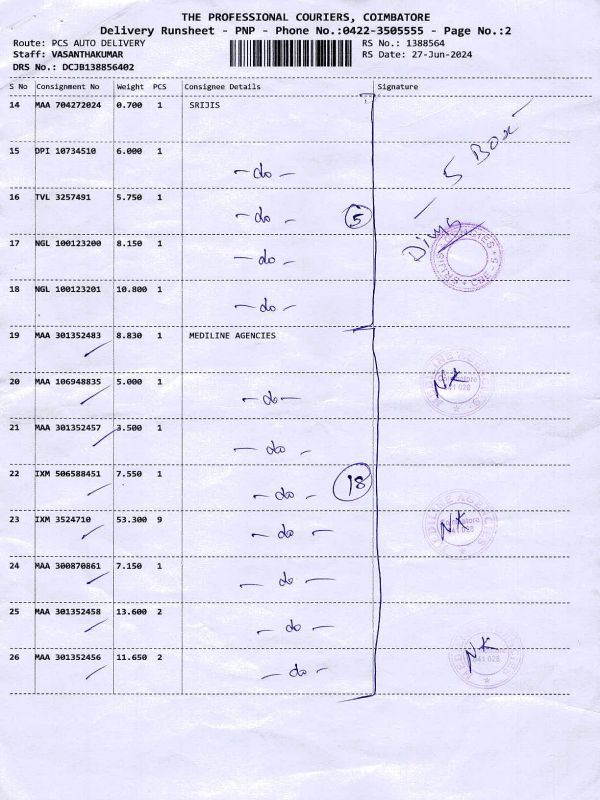 THE PROFESSIONAL COURIERS, COIMBATORE
Delivery Runsheet - PNP - Phone No.:0422-3505555 - Page No.:2
Route: PCS AUTO DELIVERY RS No.: 1388564
Staff: VASANTHAKUMAR RS Date: 27-Jun-2024
DRS No.: DCJB138856402
S No Consignment No Weight PCS Consignee Details Signature
14 MAA 704272024 0.700 1 SRIJIS
5 Box
15 DPI 10734510 6.000 1
- do -
16 TVL 3257491 5.750 1
- do - 5
17 NGL 100123200 8.150 1
- do -
18 NGL 100123201 10.800 1
- do -
19 MAA 301352483 8.830 1 MEDILINE AGENCIES
20 MAA 106948835 5.000 1 NK
- do -
21 MAA 301352457 3.500 1
- do -
22 IXM 506588451 7.550 1
- do - 18
23 IXM 3524710 53.300 9 NK
- do -
24 MAA 300870861 7.150 1
- do -
25 MAA 301352458 13.600 2
- do -
26 MAA 301352456 11.650 2 NK
641 028
- do -